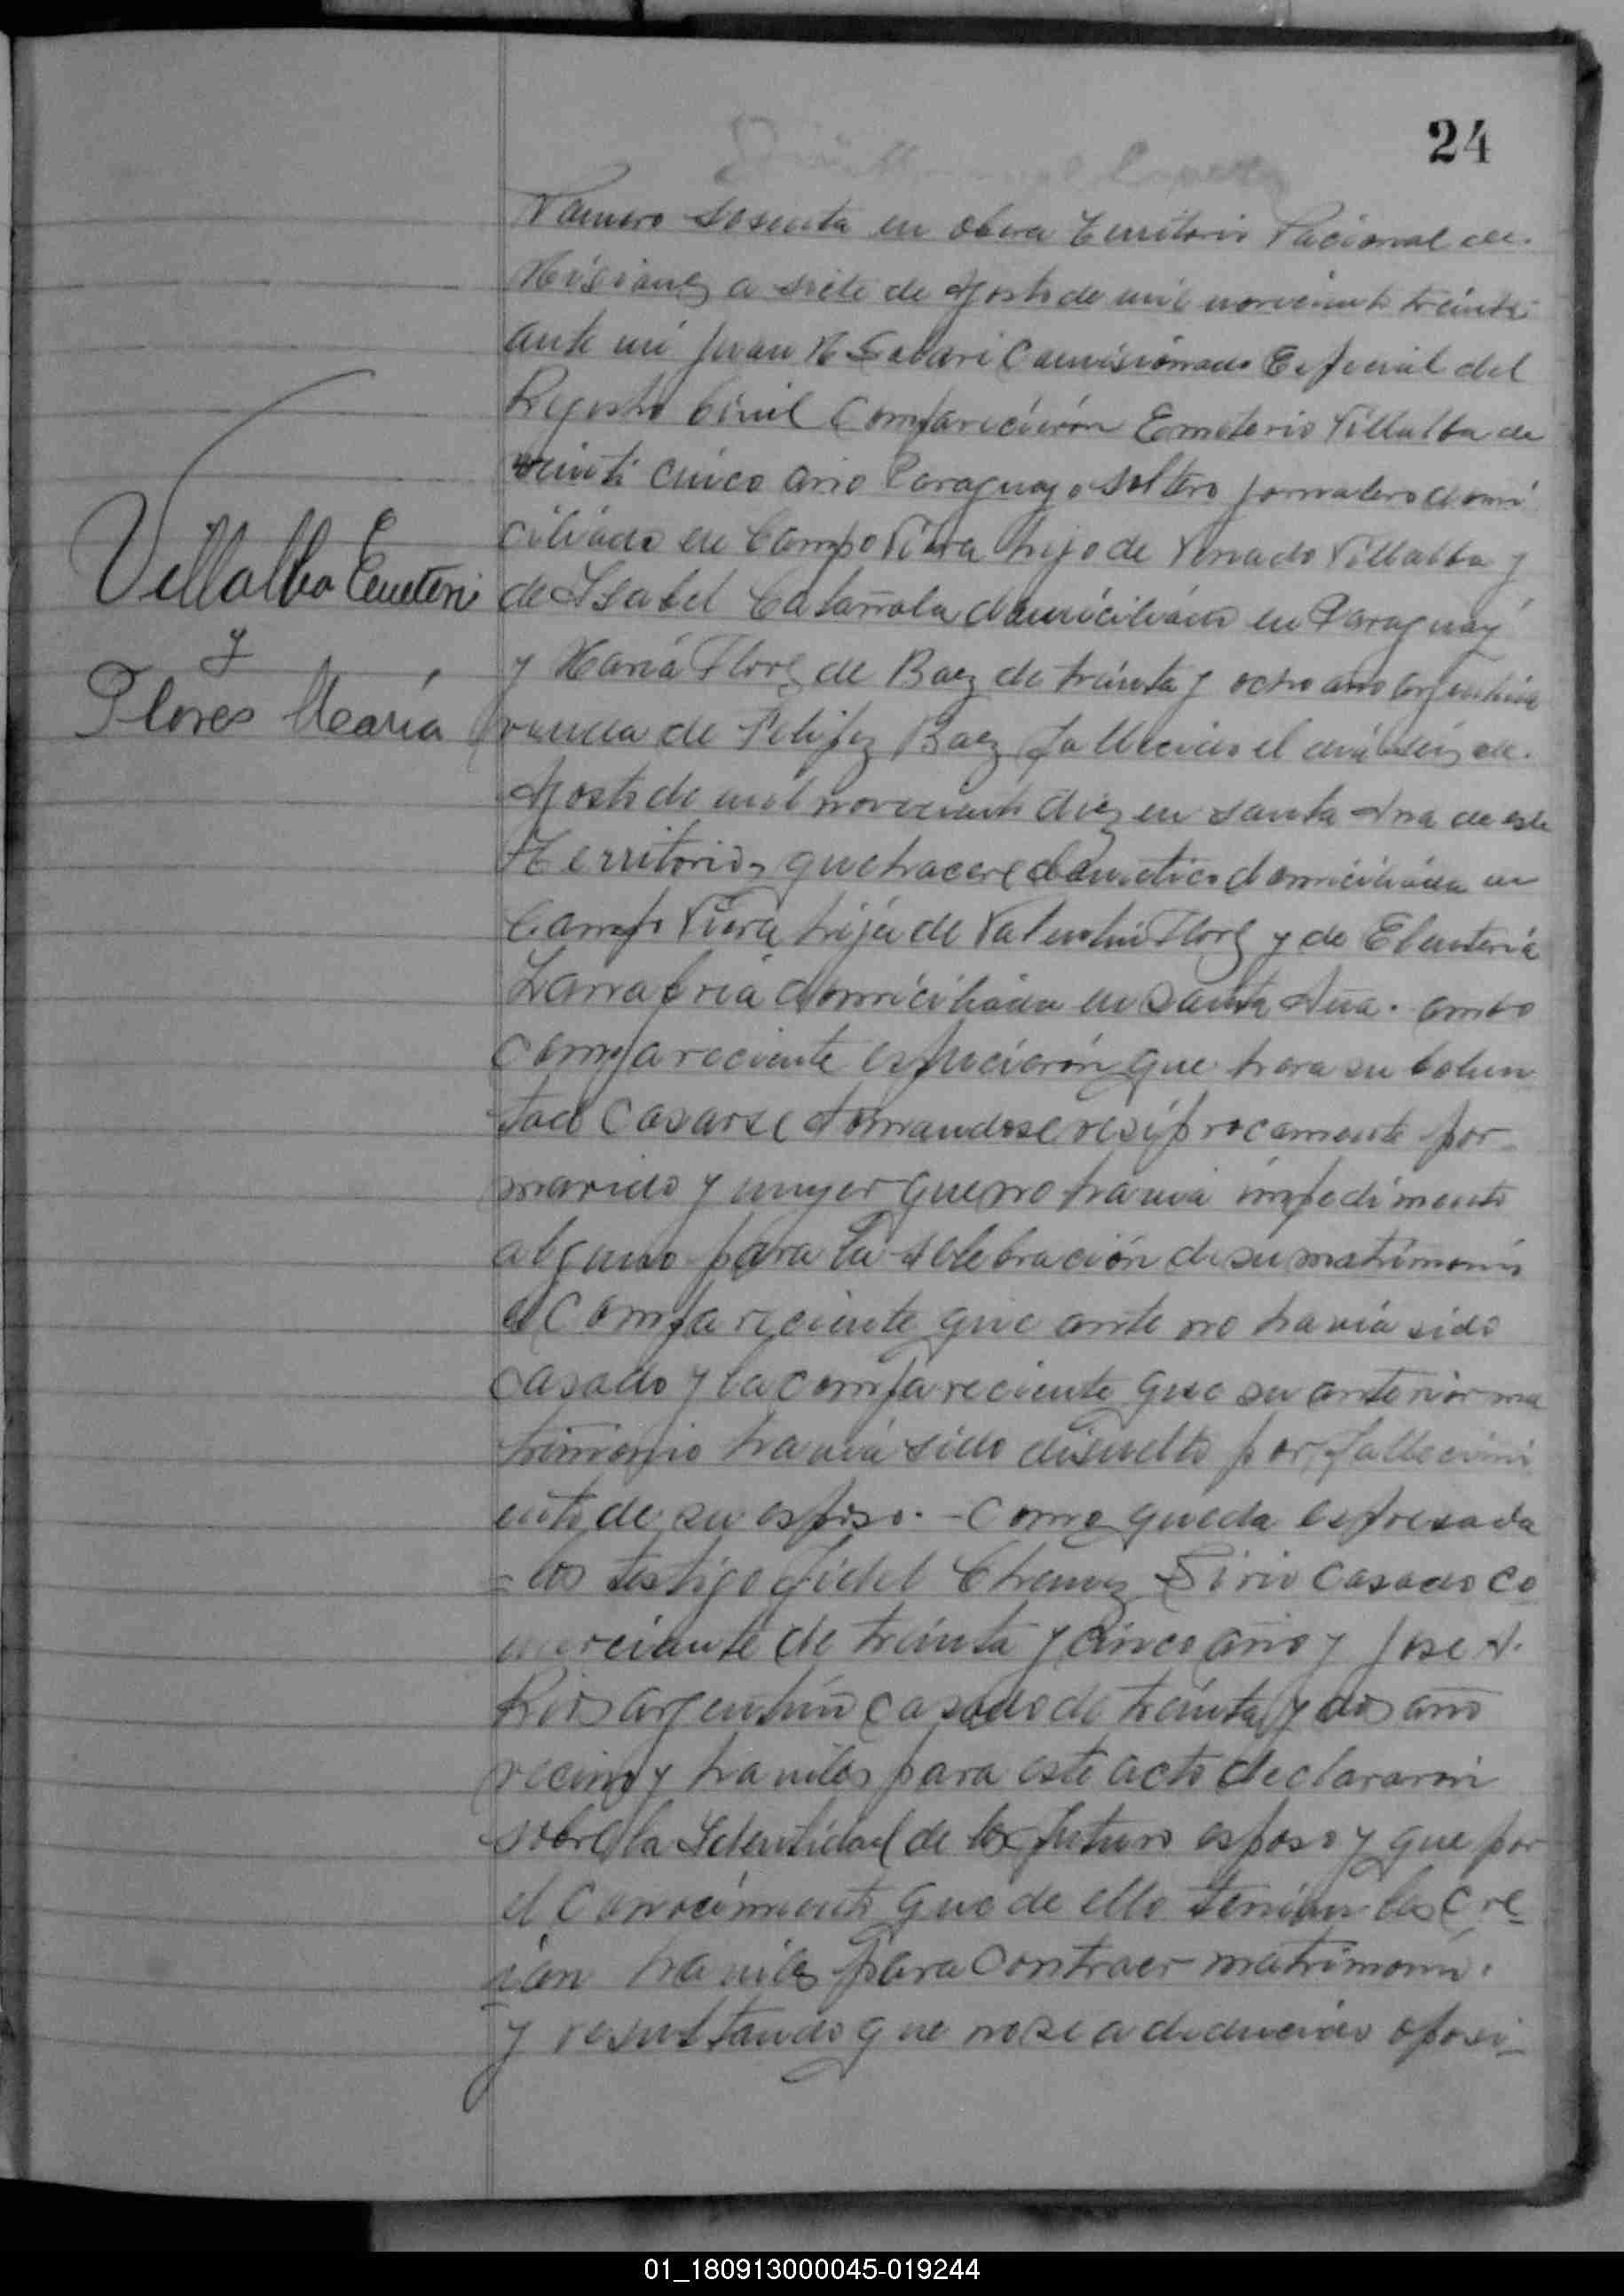 24
Numero Sesenta en Obera Territorio Nacional de
Misiones a siete de Agosto de mil noveciento treinta
ante mi Juan Comisionado Especial del
Registro Civil Comparicieron Emeterio Villalba de
veinti cinco año Paraguayo soltero jornalero domi
ciliado en Campo Viera hijo de Villalba y
de Isabel domiciliado en Paraguay
y Maria Flores de Baez de treinta y ocho año argentina
Villalba Emeterio
y
Flores María
viuda de Baez fallecido el dia seis de
Agosto de mil noveciento diez en Santa Ana de este
Territorio, quehacere domestico domiciliada en
Campo Viera hija de Valentin Flores y de Eleuteria
domiciliada en Santa Ana. ambo
compareciente que hera su bolun
tad casarse tomandose resiprocamente por
marido y muger que no havia impedimento
alguno para la selebración de su matrimonio
el compareciente que ante no havia sido
casado y la compareciente que su anterior ma
trimonio havia sido disuelto por fallecimi
ento de su esposo. - Como queda espresada
= los testigo Fidel Sirio casado co
merciante de treinta y cinco año y Jose A.
Rios argentino casado de treinta y dos año
vecino y haviles para este acto declararon
sobre la Identidad de los futuro esposo y que por
el conocimiento que de ello tenian los cre
ian haviles para contraer matrimonio.
y resultando que no se a deducido oposi-
01_180913000045-019244